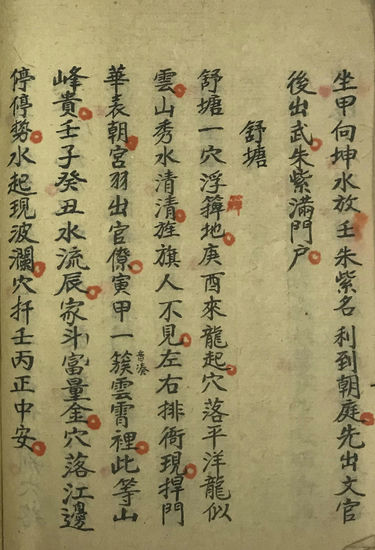 坐甲向坤水放壬朱紫名利到朝庭先出文官
後出武朱紫滿門戶
舒塘
舒塘一穴浮簰地庚酉來龍起穴落平洋龍似
雲山秀水清清旌旗人不見左右排衙現捍門
華表朝宮羽出官僚寅甲一簇雲霄裡此等山
峰貴壬子癸丑水流辰家斗富量金穴落江邊
停停勢水起現波瀾穴扦壬丙正中安